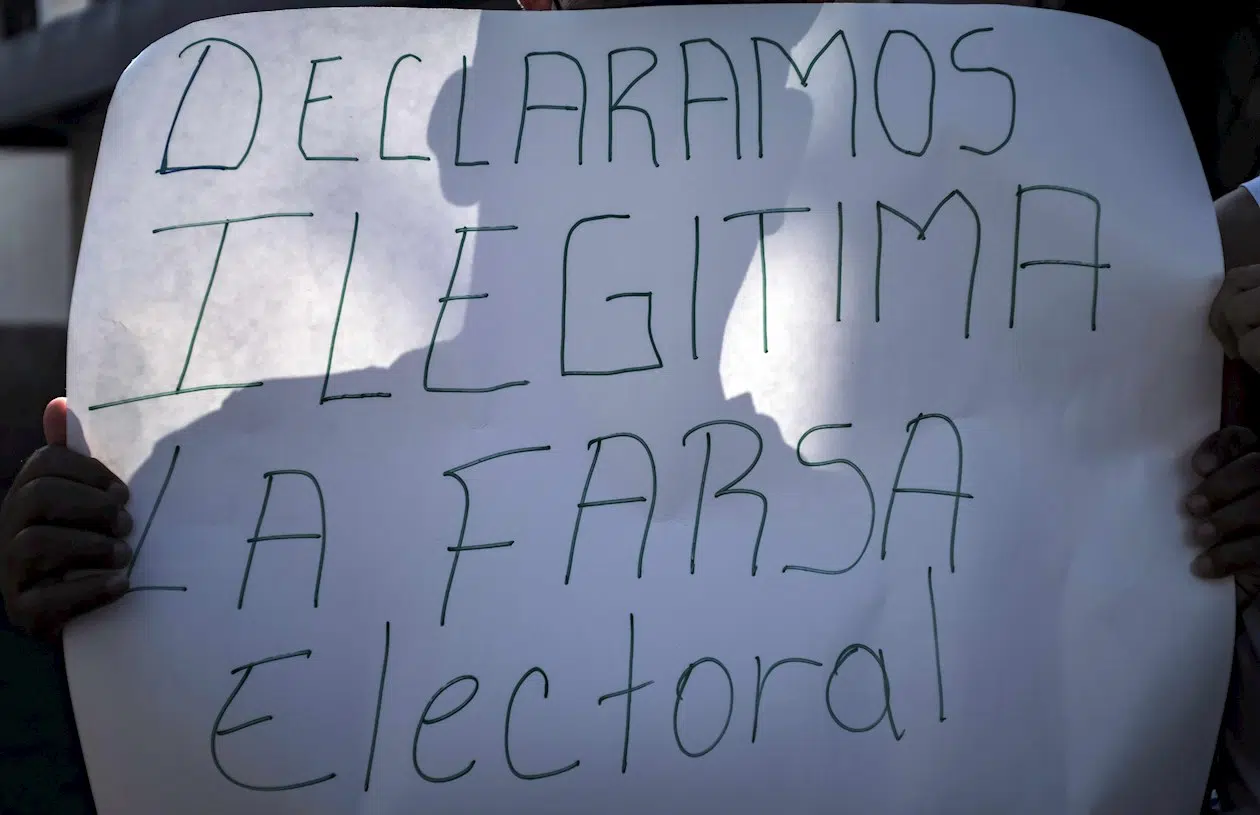 DECLARAMOS
ILEGITIMA
LA FARSA
Electoral